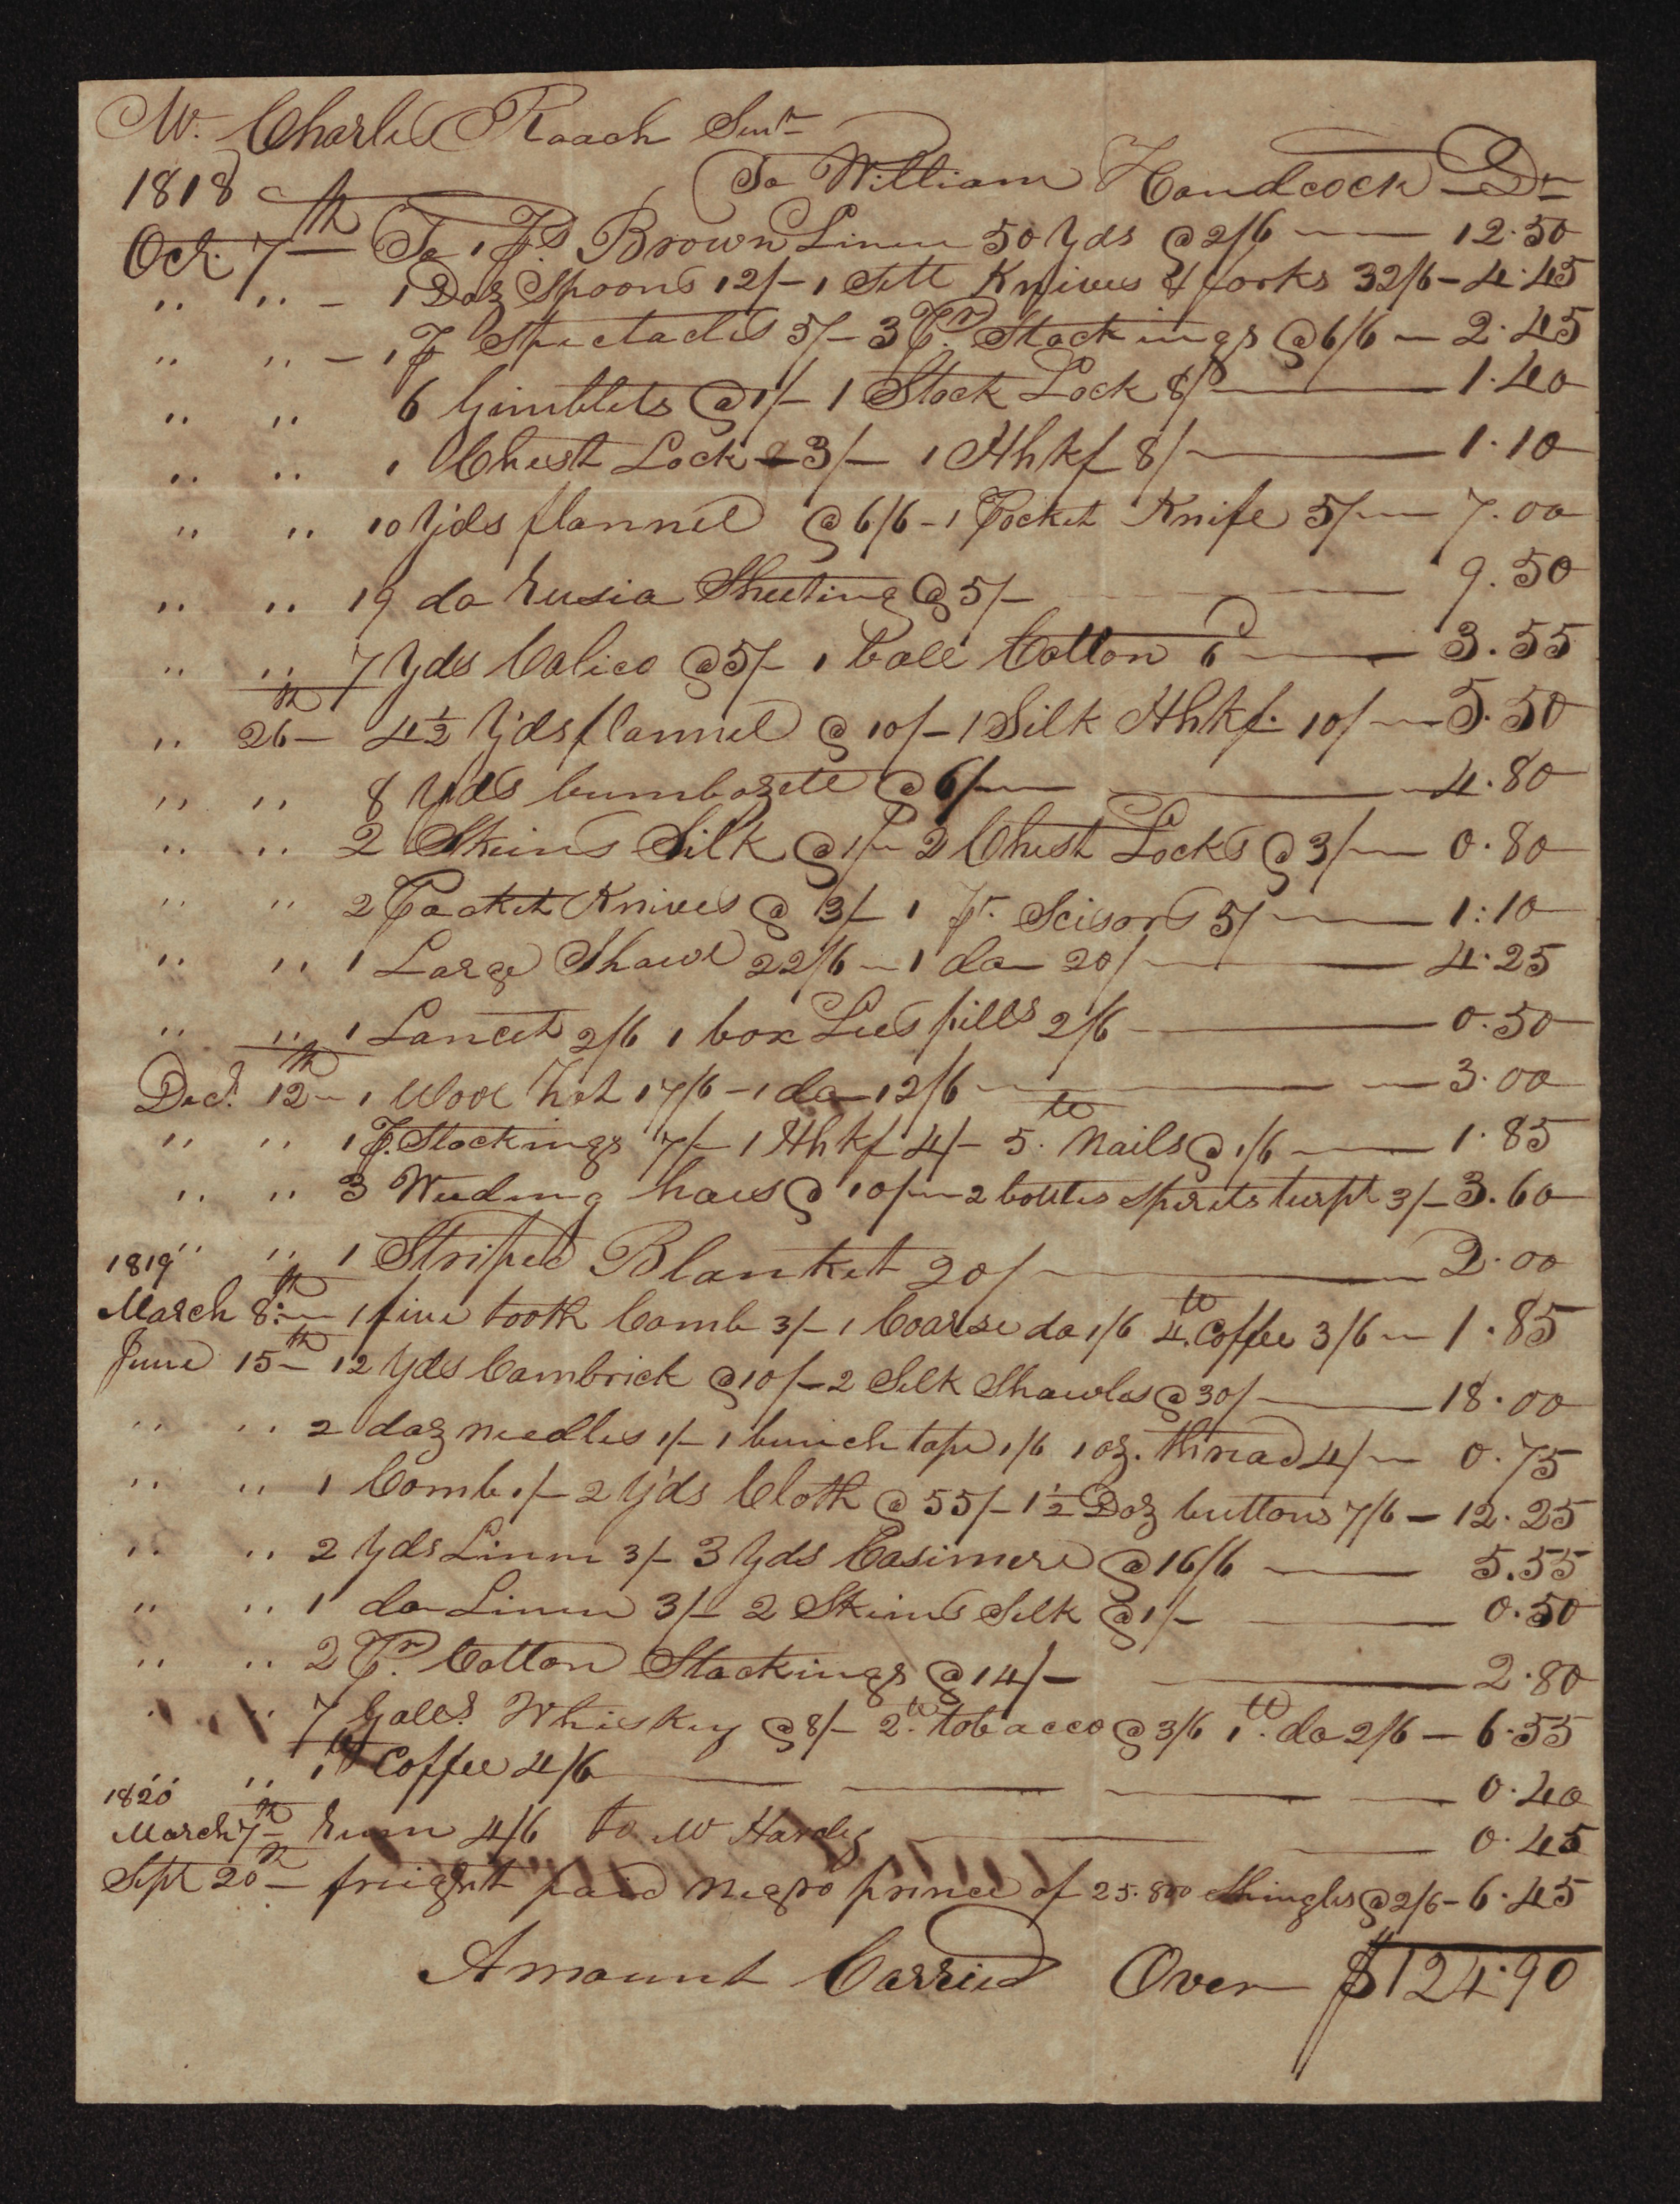 Mr. Charles Roach Senr
To William Handcock Dr
1818
Oct. 7th To 1 Ps Brown Linen 50 Yds @ 2/6 — 12.50
,, ,, — 1 Doz Spoons 12/— 1 Sett Knives & forks 32/6 — 4.45
,, ,, — 1 P Spectacles 5/— 3 Pr. Stockings @ 6/6 — 2.45
,, ,, 6 Gimblets @ 1/— 1 Stock Lock 8/ — 1.40
,, ,, 1 Chest Lock 3/— 1 Hhkf 8/ — 1.10
,, ,, 10 Yds flannel @ 6/6 — 1 Pocket Knife 5/ — 7.00
,, ,, 19 do Rusia Sheeting @ 5/— 9.50
,, ,, 7 Yds Calico @ 5/— 1 ball Cotton 6 — 3.55
,, 26th — 4½ Yds flannel @ 10/— 1 Silk Hhkf. 10/ — 5.50
,, ,, 8 Yds bumbazett @ 6/ — 4.80
,, ,, 2 Skeins Silk @ 1/— 2 Chest Locks @ 3/ — 0.80
,, ,, 2 Pocket Knives @ 3/— 1 Pr. Scisors 5/ — 1.10
,, ,, 1 Large Shawl 22/6 — 1 do 20/ — 4.25
,, ,, 1 Lancet 2/6 1 box Lees pills 2/6 — 0.50
Decr. 12th — 1 Wool hat 17/6 — 1 do 12/6 — 3.00
,, ,, 1 P. Stockings 7/— 1 Hhkf 4/— 5. lb Nails @ 1/6 — 1.85
,, ,, 3 Weeding hoes @ 10/— 2 bottles Spirits turpt 3/— 3.60
,, ,, 1 Striped Blanket 20/ — 2.00
1819
March 8th — 1 fine tooth Comb 3/— 1 Coarse do 1/6 4 lb Coffee 3/6 — 1.85
June 15th — 12 Yds Cambrick @ 10/— 2 Silk Shawls @ 30/ — 18.00
,, ,, 2 doz needles 1/— 1 bunch tape 1/6 1 oz. thread 4/ — 0.75
,, ,, 1 Comb 1/— 2 Yds Cloth @ 55/— 1½ Doz buttons 7/6 — 12.25
,, ,, 2 Yds Linen 3/— 3 Yds Casimere @ 16/6 — 5.55
,, ,, 1 do Linen 3/— 2 Skeins Silk @ 1/— 0.50
,, ,, 2 Pr. Cotton Stockings @ 14/— 2.80
,, ,, 7 Galls. Whiskey @ 8/— 2. lb tobacco @ 3/6 1 lb. do 2/6 — 6.55
,, ,, 1 lb Coffee 4/6 — 0.40
1820
March 7th — Rum 4/6 to W Hardy — 0.45
Sept 20th — freight paid negro prince of 25.800 Shingles @ 2/6 — 6.45
Amount Carried Over $124.90